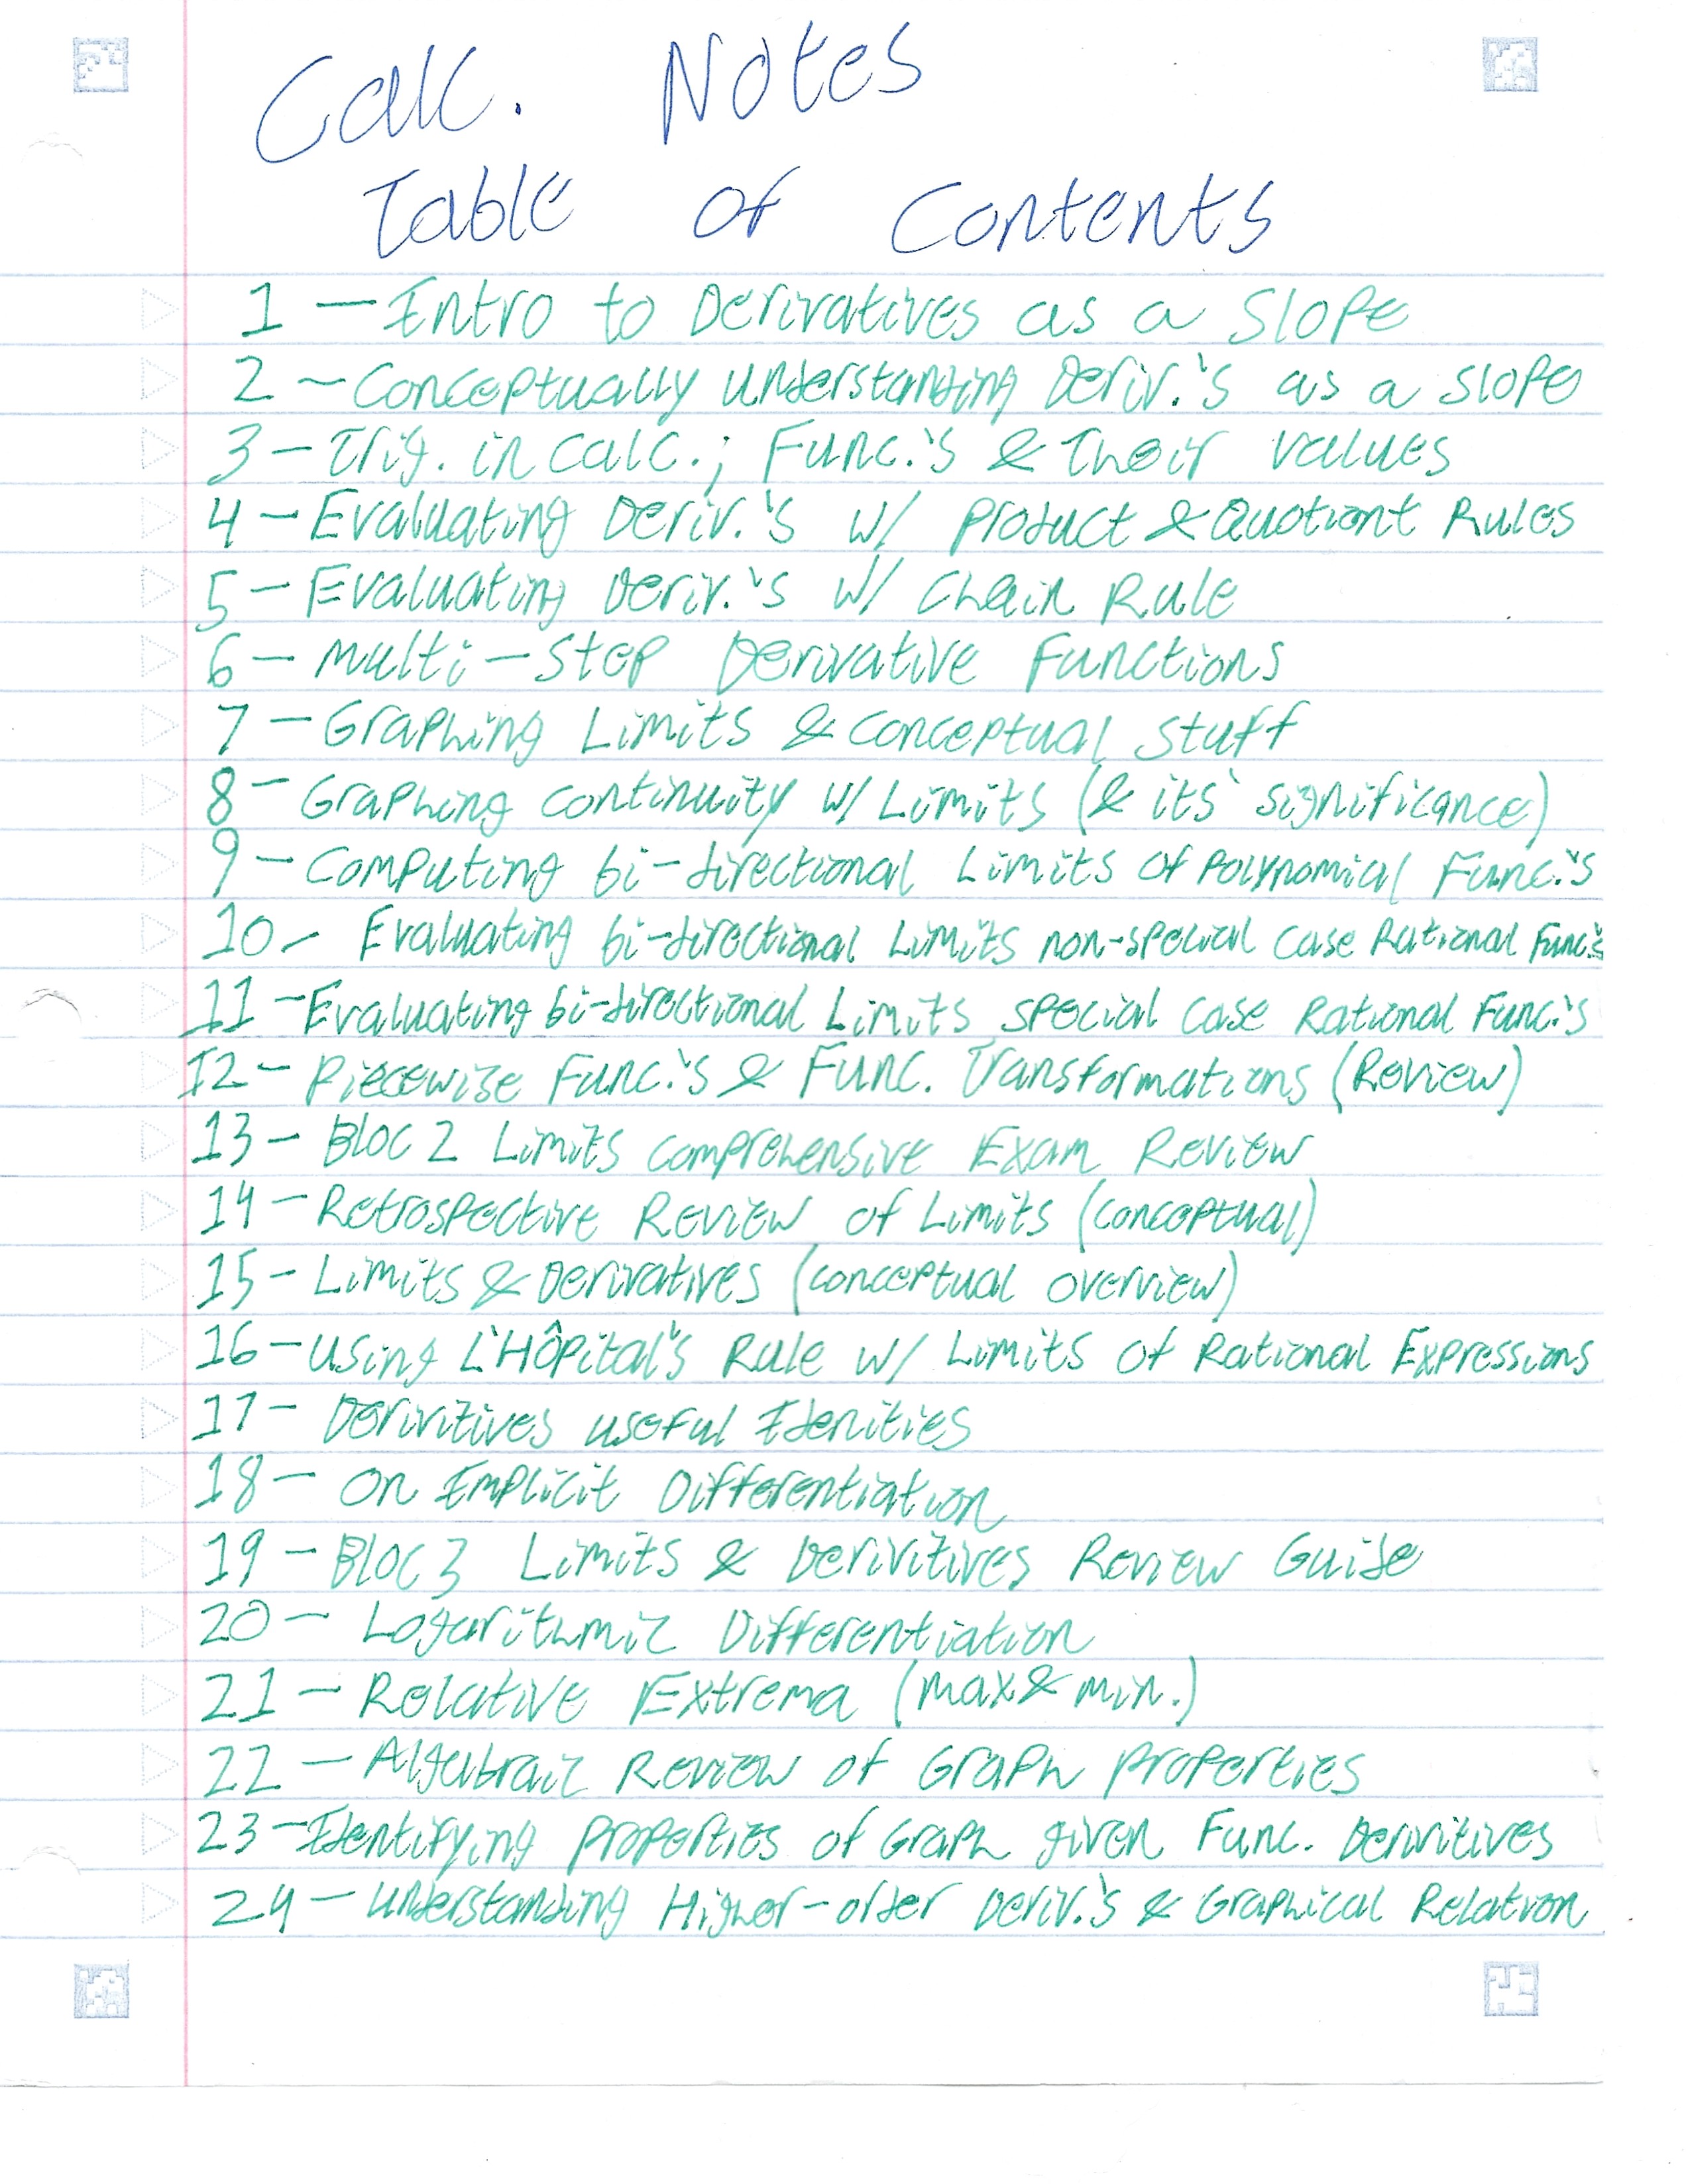 Calc. Notes
Table of Contents
1 — Intro to Derivatives as a Slope
2 — Conceptually understanding Deriv.'s as a slope
3 — Trig. in calc.; Func.'s & Their values
4 — Evaluating Deriv.'s w/ product & Quotient Rules
5 — Evaluating Deriv.'s w/ Chain Rule
6 — Multi-Step Derivative Functions
7 — Graphing Limits & conceptual stuff
8 — Graphing continuity w/ Limits (& its' significance)
9 — Computing bi-directional Limits of Polynomial Func.'s
10 — Evaluating bi-directional Limits non-special case Rational Func.'s
11 — Evaluating bi-directional Limits special case Rational Func.'s
12 — Piecewise Func.'s & Func. Transformations (Review)
13 — Bloc 2 Limits comprehensive Exam Review
14 — Retrospective Review of Limits (conceptual)
15 — Limits & Derivatives (conceptual overview)
16 — using L'Hôpital's Rule w/ Limits of Rational Expressions
17 — Derivitives useful Idenities
18 — On Implicit Differentiation
19 — Bloc 3 Limits & Derivitives Review Guide
20 — Logarithmic Differentiation
21 — Relative Extrema (max & min.)
22 — Algabraic Review of Graph properties
23 — Identifying properties of Graph given Func. Derivitives
24 — understanding Higher-order Deriv.'s & Graphical Relation